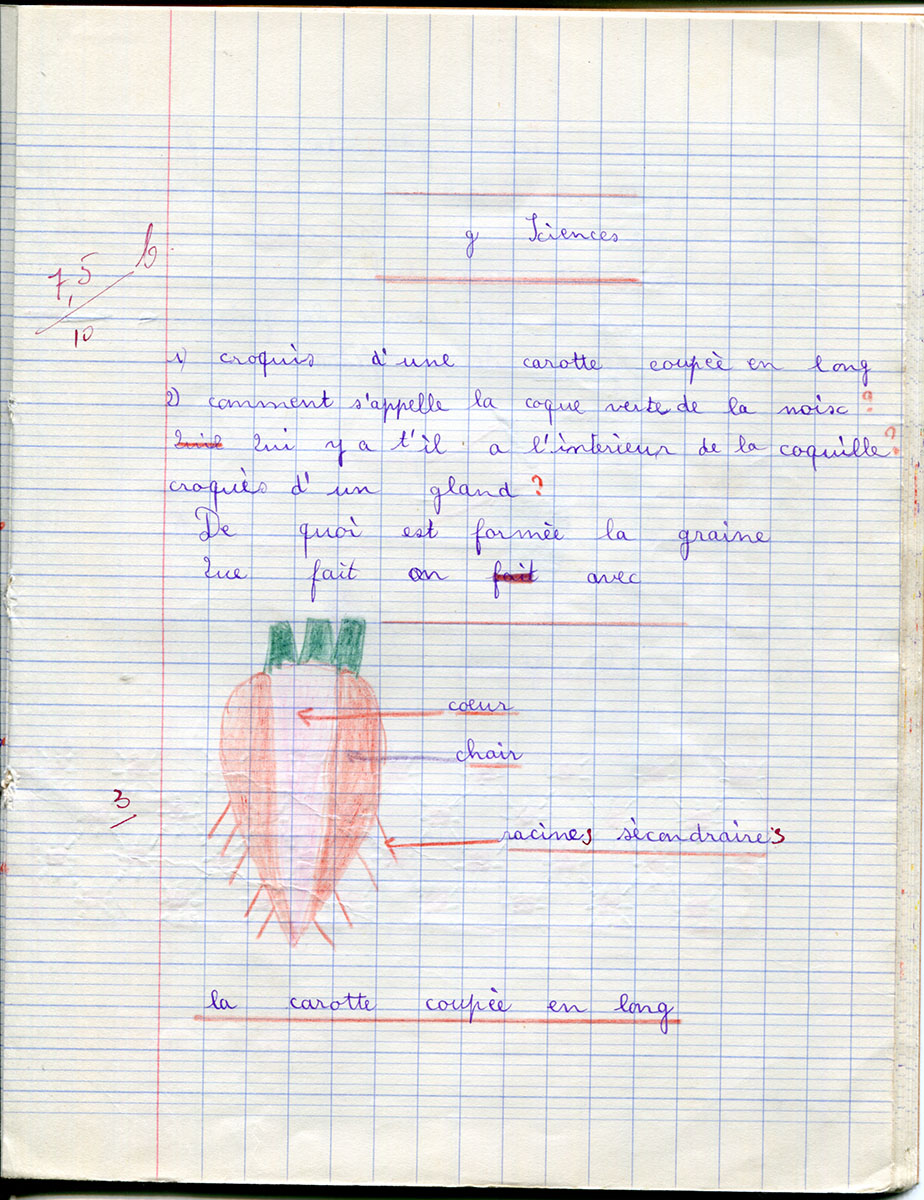 g Sciences
7,5 b
10
1) croquis d'une carotte coupèe en long
2) comment s'appelle la coque verte de la noisc ?
Qui y a t'il a l'intèrieur de la coquille ?
croquis d'un gland ?
De quoi est formèe la graine
Que fait on fait avec
coeur
chair
3
racines sècondraires
la carotte coupèe en long